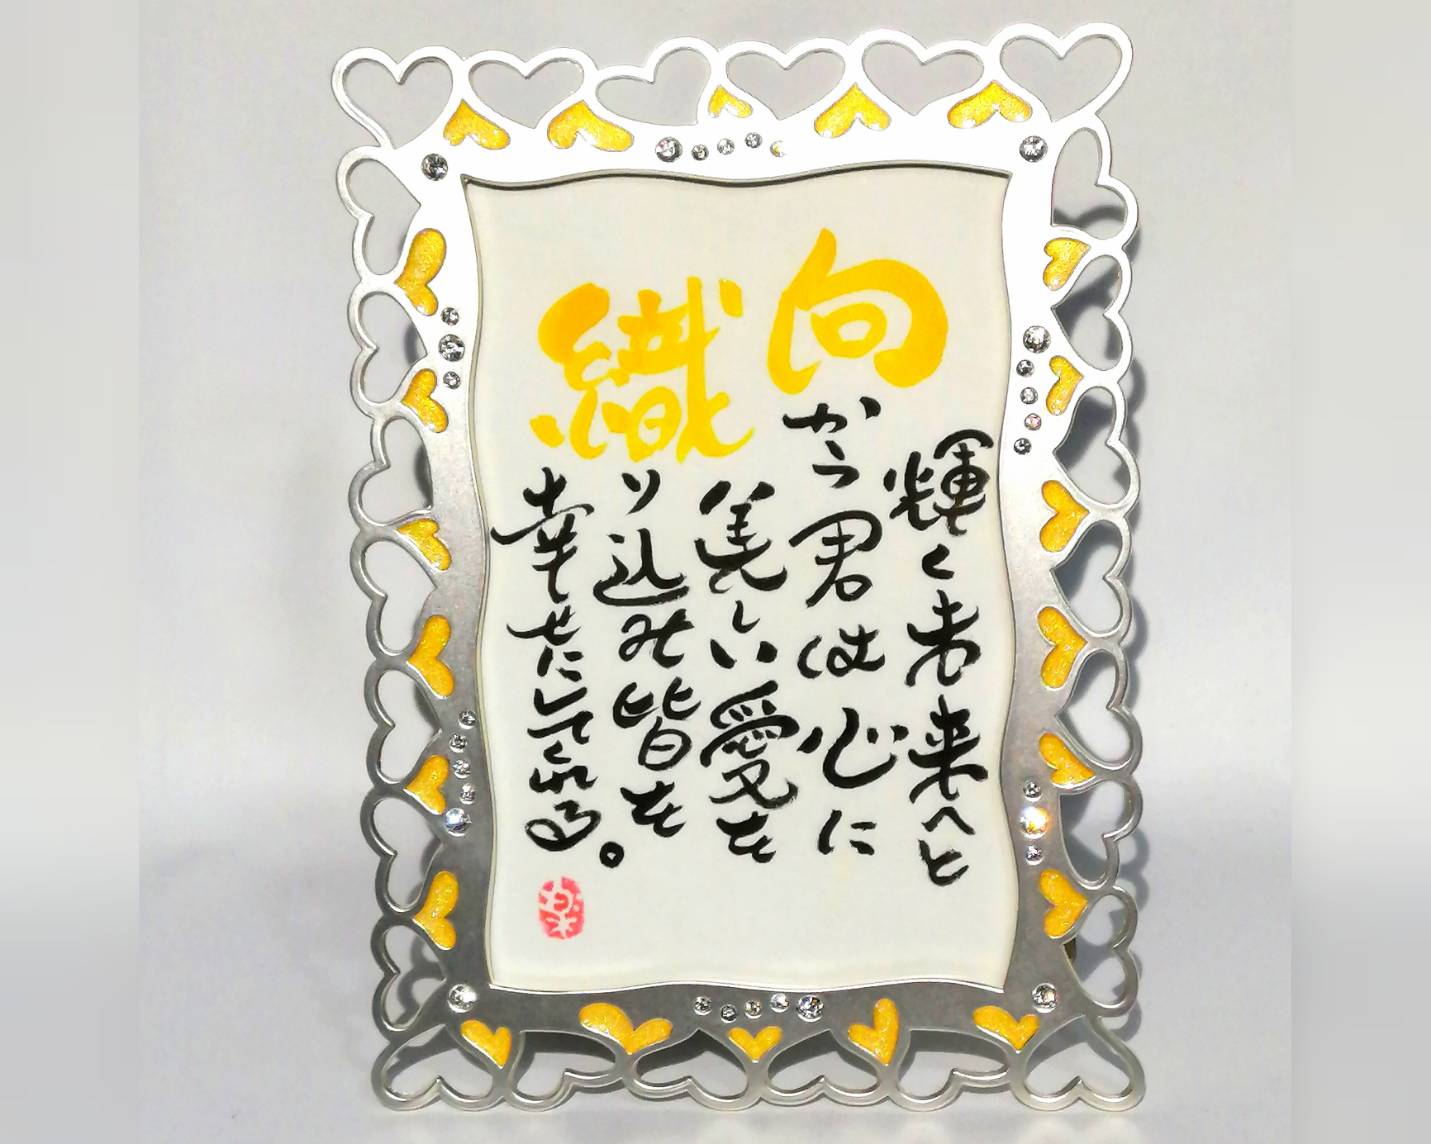 輝く未来へと
向かう君は心に
美しい愛を
織り込み皆を
幸せにしてくれる。